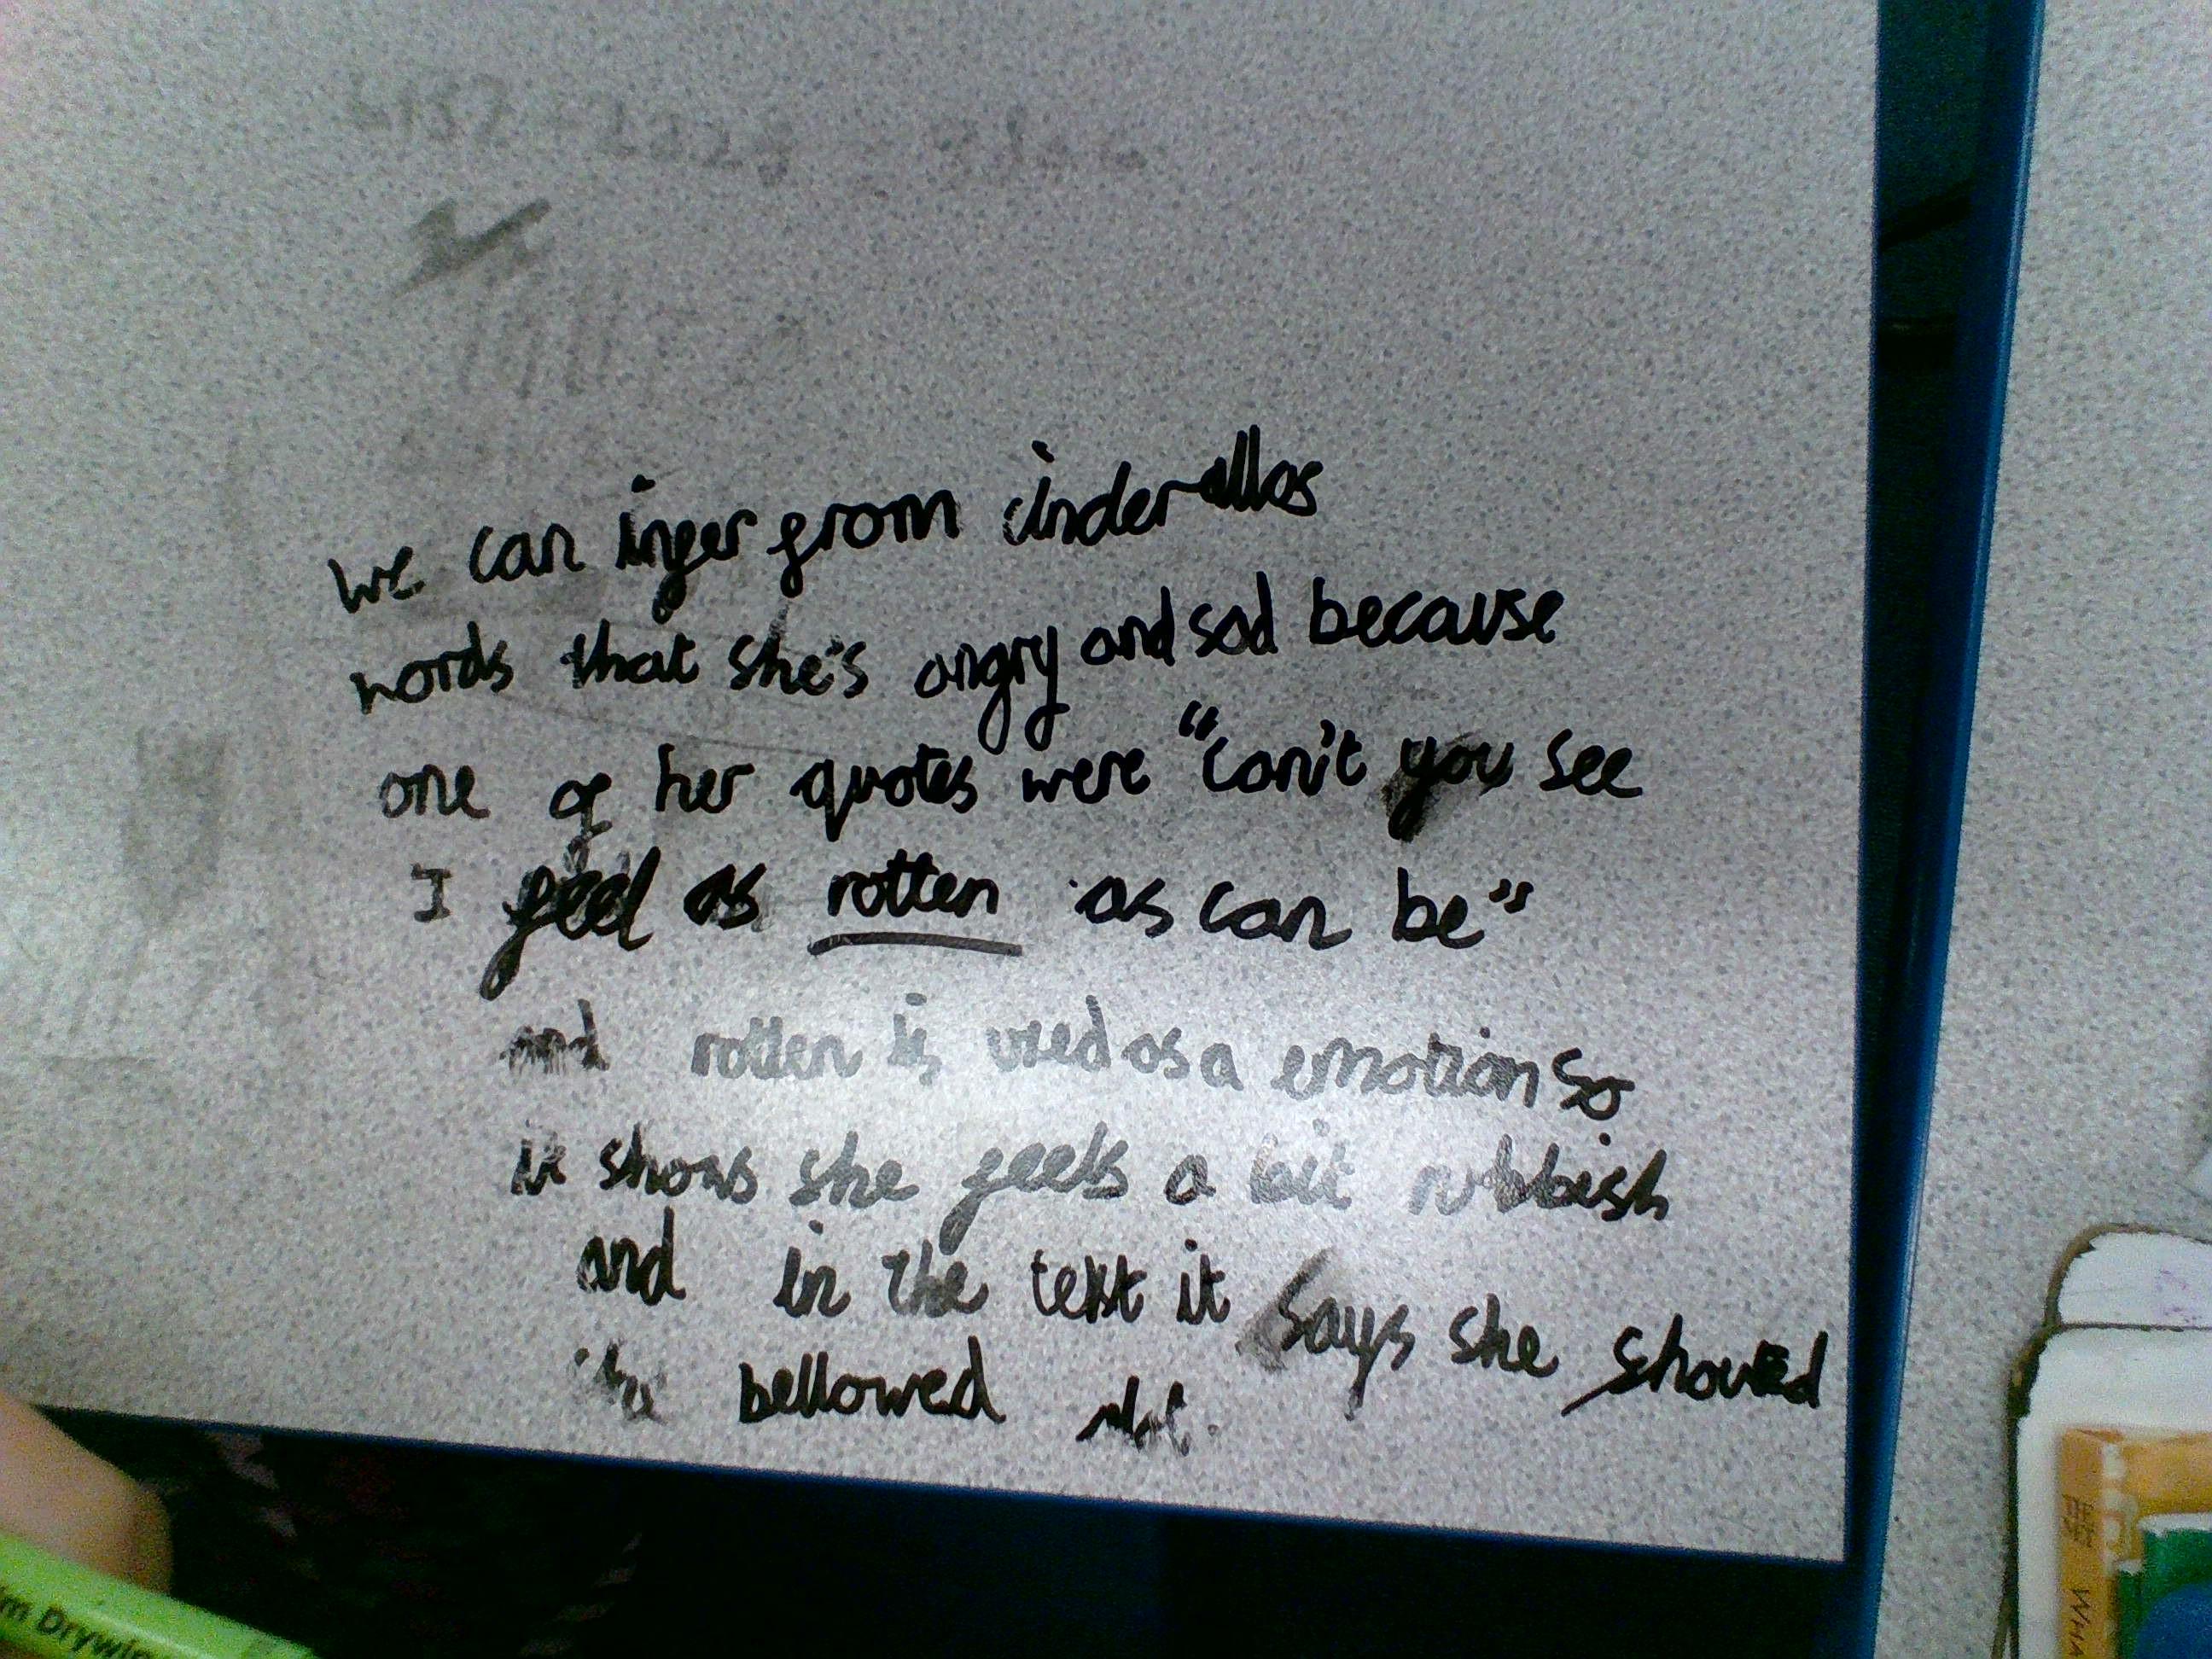 we can infer from cinderallas
words that she's angry and sad because
one of her quotes were "can't you see
I feel as rotten as can be"
and rotten is used as a emotion so
it shows she feels a bit rubbish
and in the text it says she shouted
bellowed
m Drywip
WHA